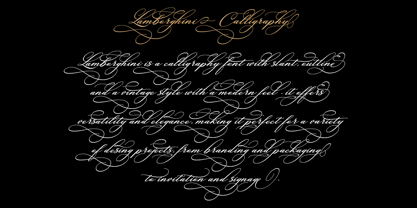 Lamborghine - Calligraphy
Lamborghine is a calligraphy font with slant, outline
and a vintage style with a modern feel. it offers
versatility and elegance, making it perfect for a variety
of desing projects, from branding and packaging
to invitation and signage.